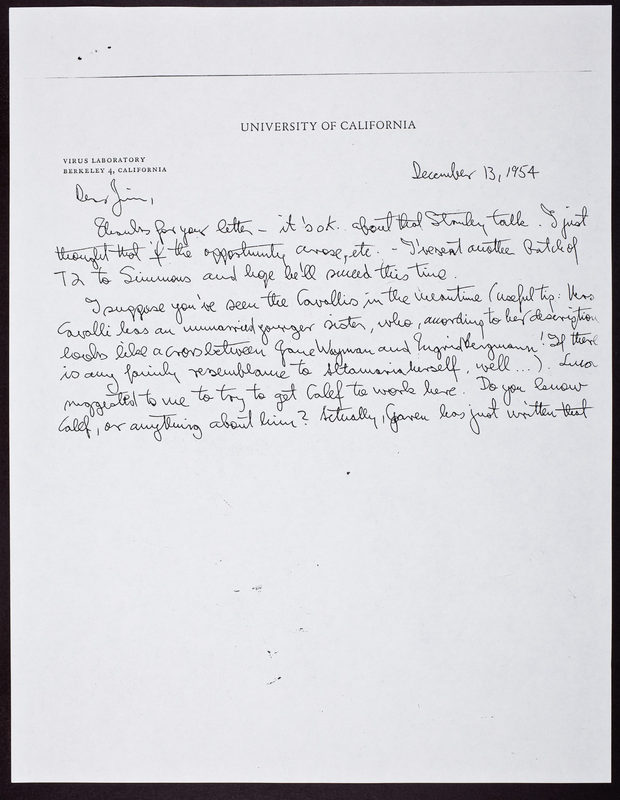 UNIVERSITY OF CALIFORNIA
VIRUS LABORATORY
BERKELEY 4, CALIFORNIA
December 13, 1954
Dear Jim,
Thanks for your letter – it's ok. about that Stanley talk. I just
thought that if the opportunity arose, etc. – I've sent another batch of
T2 to Simmons and hope he'll succeed this time.
I suppose you've seen the Cavallis in the meantime (useful tip: Mrs
Cavalli has an unmarried younger sister, who, according to her description
looks like a cross between Jane Wayman and Ingrid Bergmann! If there
is any family resemblance to Altamaria herself, well...). Luca
suggested to me to try to get Calef to work here. Do you know
Calef, or anything about him? Actually, Garen has just written that